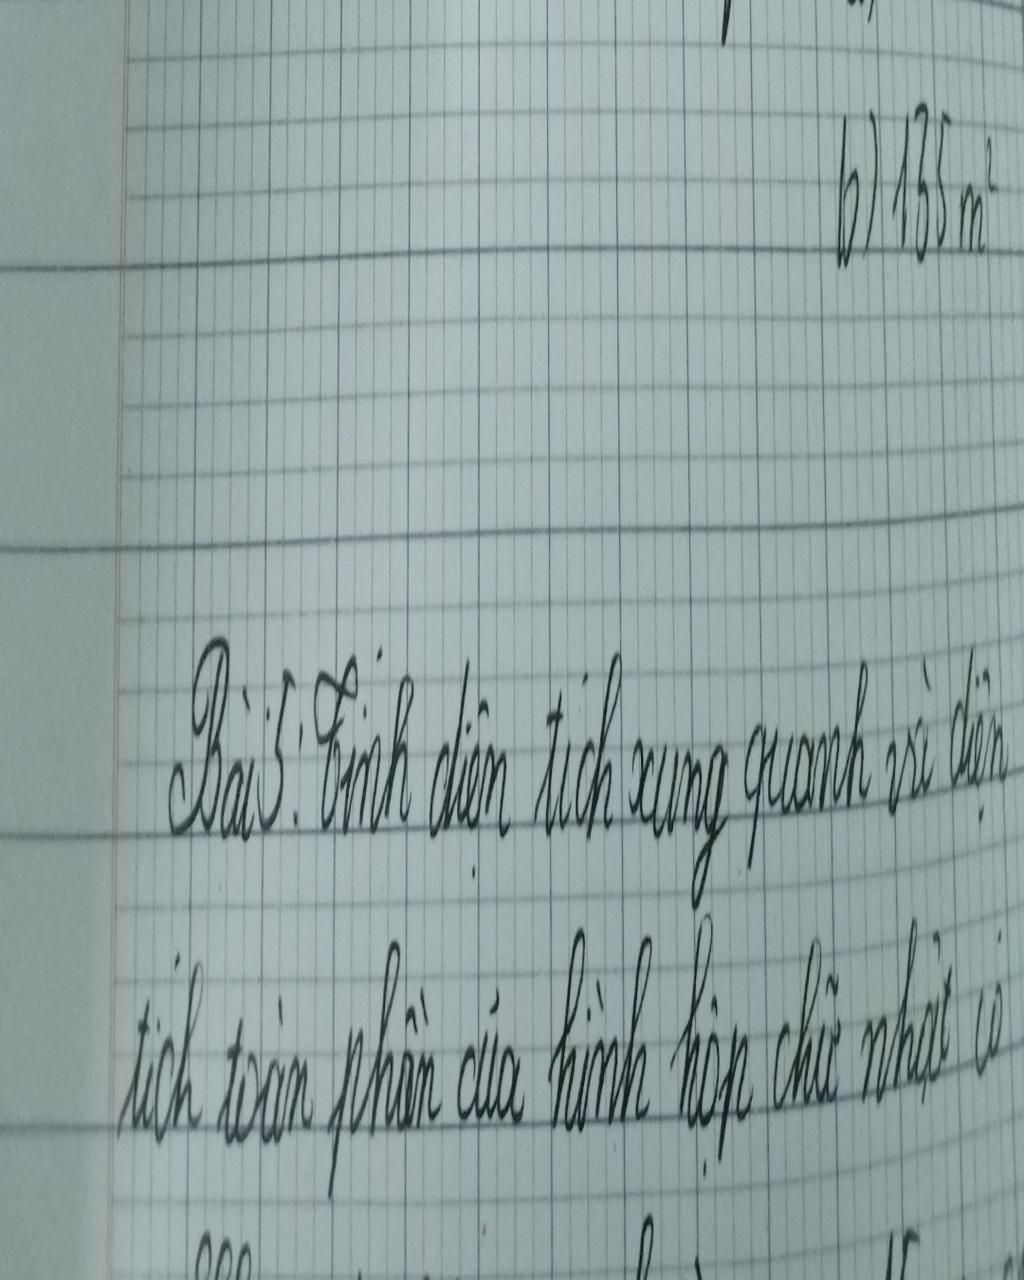 b) 135 m²
Bài 5: Tính diện tích xung quanh và diện
tích toàn phần của hình hộp chữ nhật có